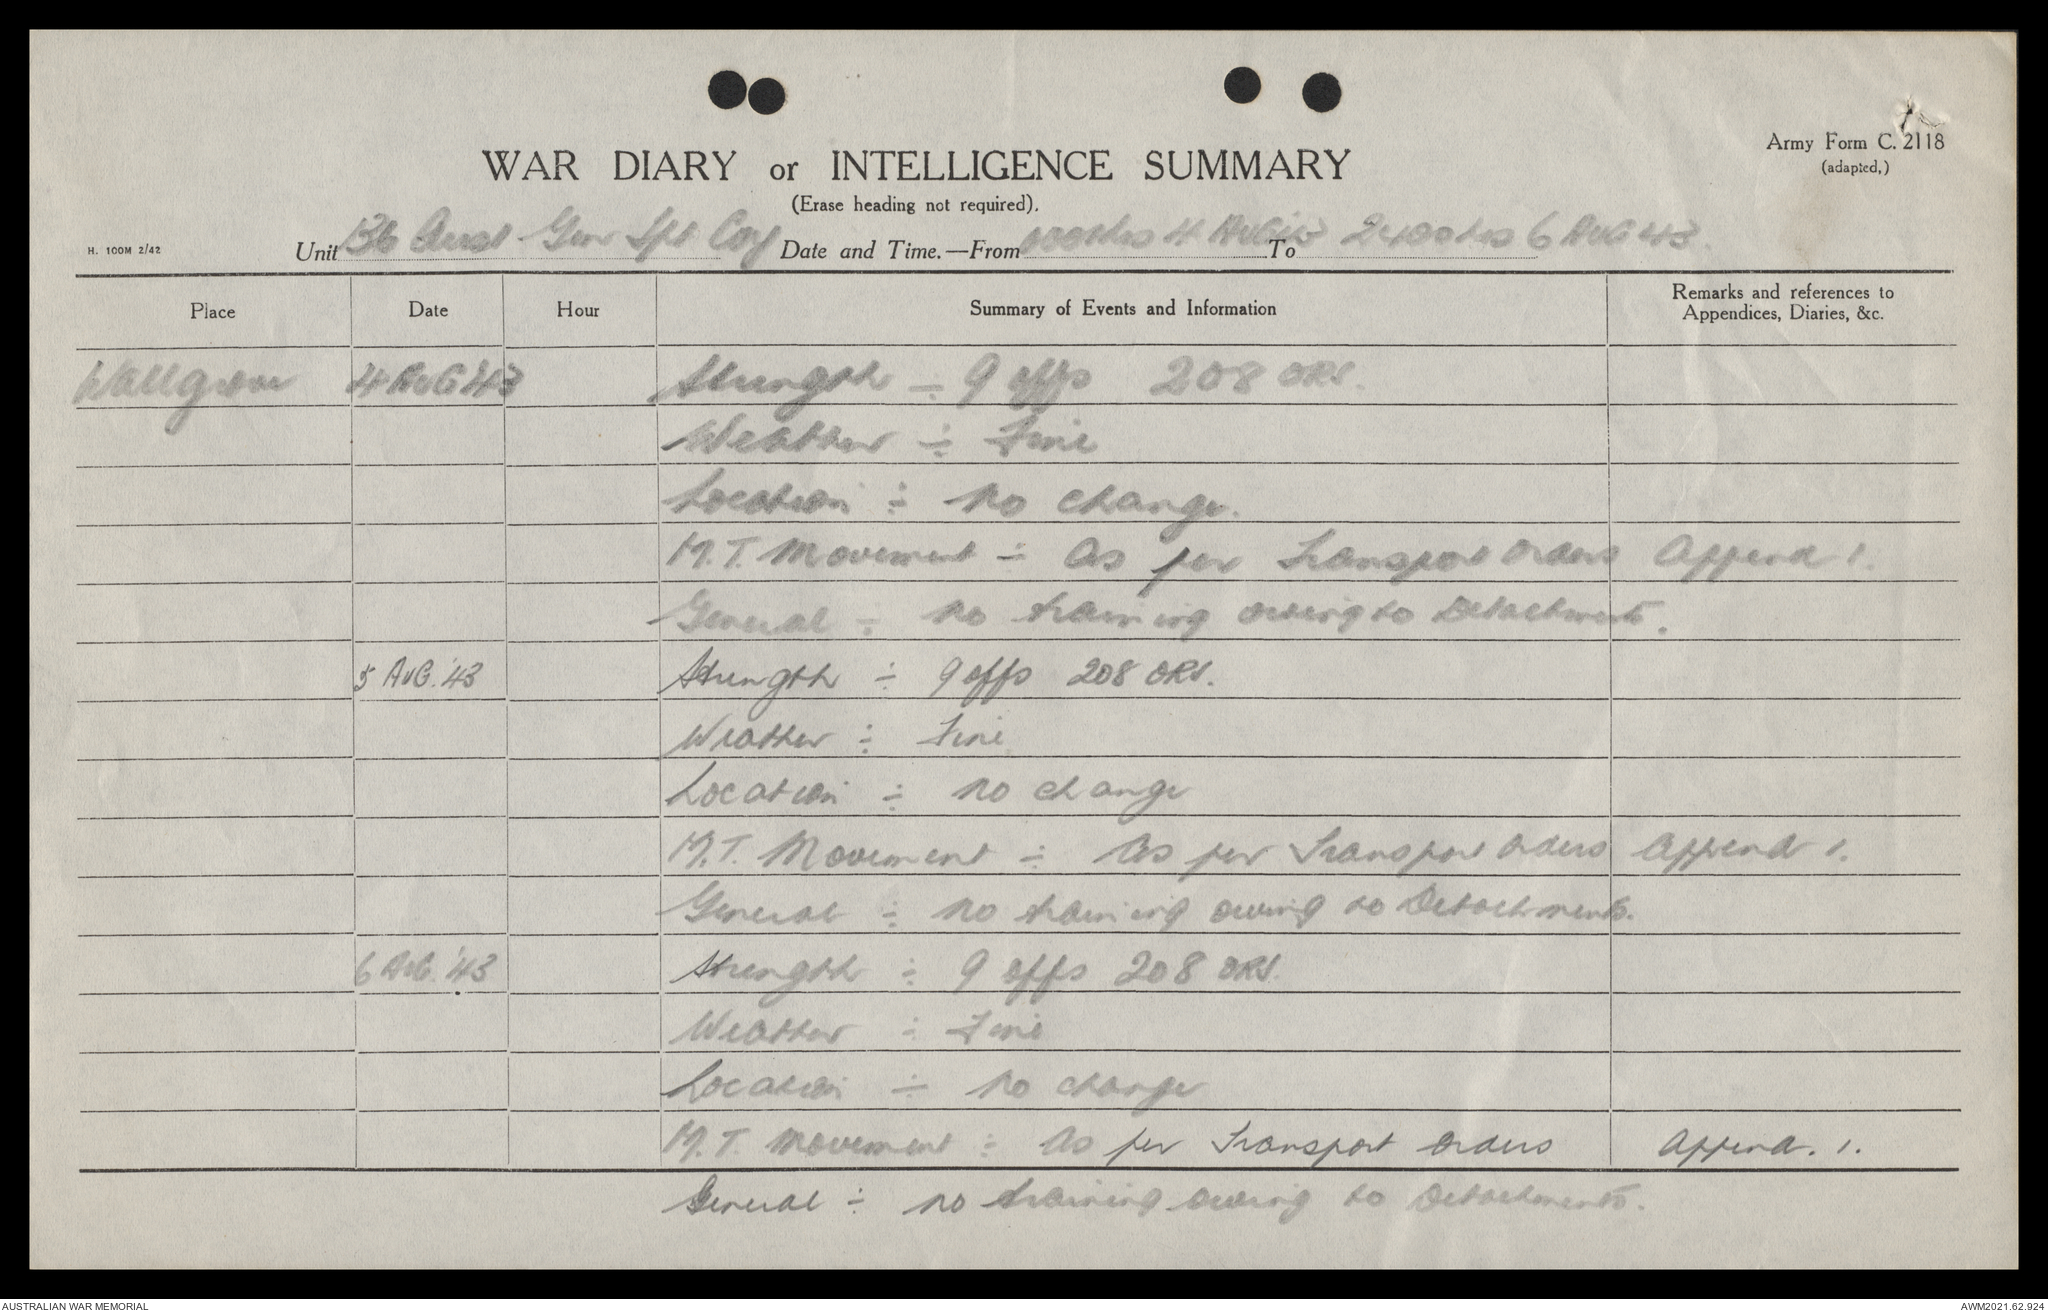 Army Form C. 2118
(adapted,)
WAR DIARY or INTELLIGENCE SUMMARY
(Erase heading not required).
H. 100M 2/42
Unit 136 Aust Gen Tpt Coy Date and Time.—From 0001hrs 4 AUG 43 To 2400hrs 6 AUG 43.
Place Date Hour Summary of Events and Information Remarks and references to
Appendices, Diaries, &c.
Wallgrove 4 AUG 43 Strength ÷ 9 offs 208 ORS.
Weather ÷ Fine
Location ÷ No change.
M.T. Movement ÷ As per Transport Orders Append 1.
General ÷ No training owing to Detachments.
5 AUG. '43 Strength ÷ 9 offs 208 ORS.
Weather ÷ Fine
Location ÷ No change
M.T. Movement ÷ As per Transport Orders Append 1.
General ÷ No training owing to Detachments.
6 AUG. '43 Strength ÷ 9 offs 208 ORS.
Weather ÷ Fine
Location ÷ No change
M.T. Movement ÷ As per Transport Orders Append. 1.
General ÷ No training owing to Detachments.
AUSTRALIAN WAR MEMORIAL AWM2021.62.924